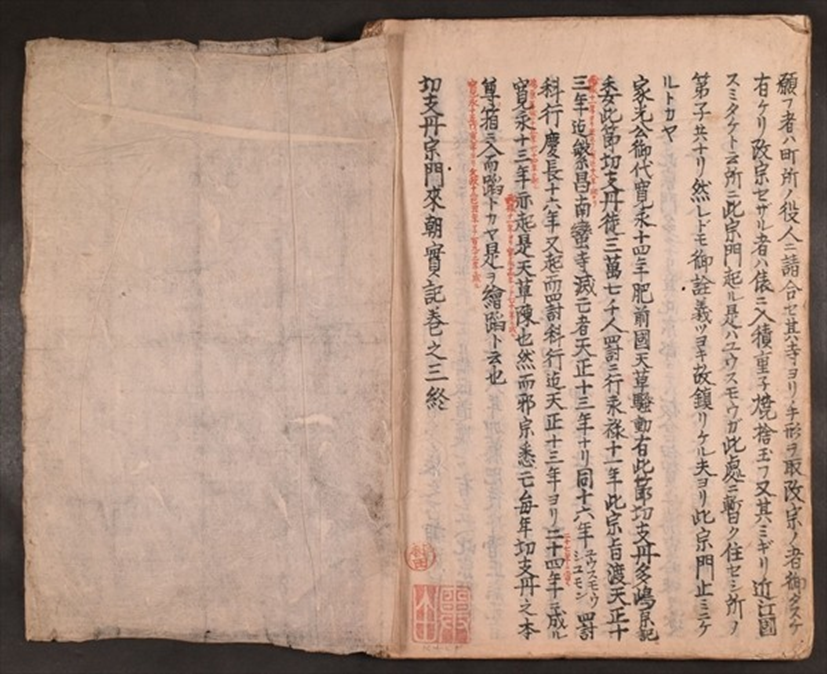 願フ者ハ町所ノ役人ニ請合セ其寺ヨリ手形ヲ取改宗ノ者御タスケ
有ケリ改宗セザル者ハ俵ニ入積重子焼捨玉フ又其ミギリ近江國
スミタケト云所ニ此宗門起ル是ハユウスモウガ此處ニ暫ク住セシ所ノ
第子共ナリ然レドモ御詮義ツヨキ故鎮リケル夫ヨリ此宗門止ミニケ
ルトカヤ
家光公御代寛永十四年肥前國天草騒動有此節切支丹多嶋原記
委此節切支丹徒三萬七千人罸ニ行永禄十一年此宗旨渡天正十
三年迄繁昌南蠻寺滅亡者天正十三年ナリ同十六年ユウスモウシユモン罸
科行慶長十六年又起而罸科行迄天正十三年ヨリ二十四年ニ成ル
寛永十三年亦起是天草陳也然而邪宗悉亡毎年切支丹之本
尊箱ニ入而蹈トカヤ是ヲ繪蹈ト云也
切支丹宗門來朝實記巻之三終